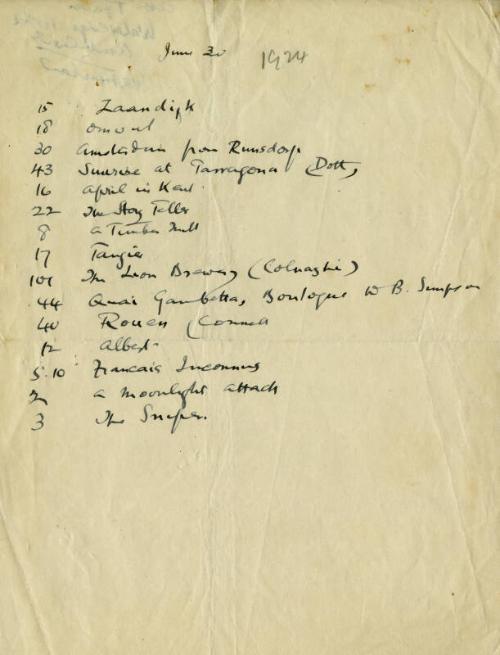 June 30 1924
15 Zaandijk
18
30 Amsterdam from Runsdorp
43 Sunrise at Tarragona (Dott,
16 April in Kent
22 The Story Teller
8 a Timber Mill
17 Tangier
101 The Lion Brewery (Colnaghi)
44 Quai Gambetta, Boulogne W B. Simpson
40 Rouen (Connell
12 Albert
5.10 Francais Inconnus
2 a moonlight attack
3 The Sniper.